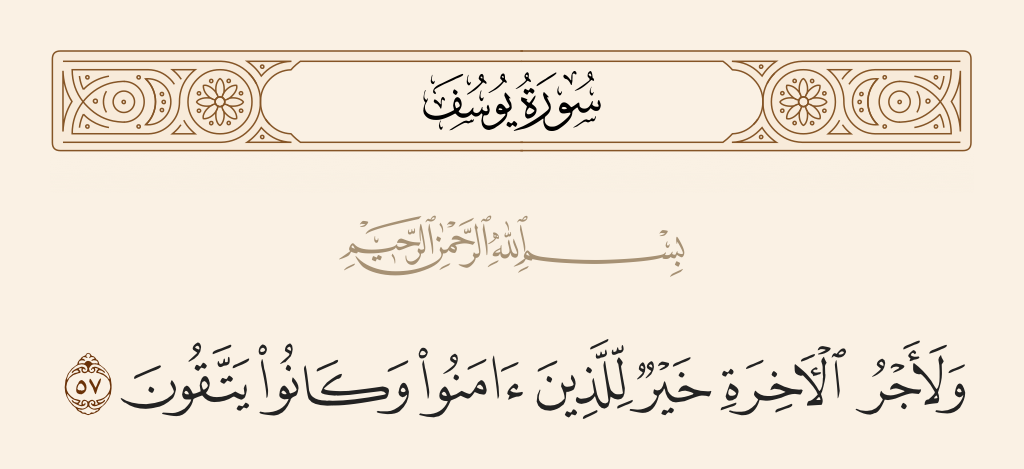 سُورَةُ يُوسُفَ
بِسْمِ ٱللَّهِ ٱلرَّحْمَٰنِ ٱلرَّحِيمِ
وَلَأَجْرُ ٱلْـَٔاخِرَةِ خَيْرٌ لِّلَّذِينَ ءَامَنُوا۟ وَكَانُوا۟ يَتَّقُونَ ٥٧